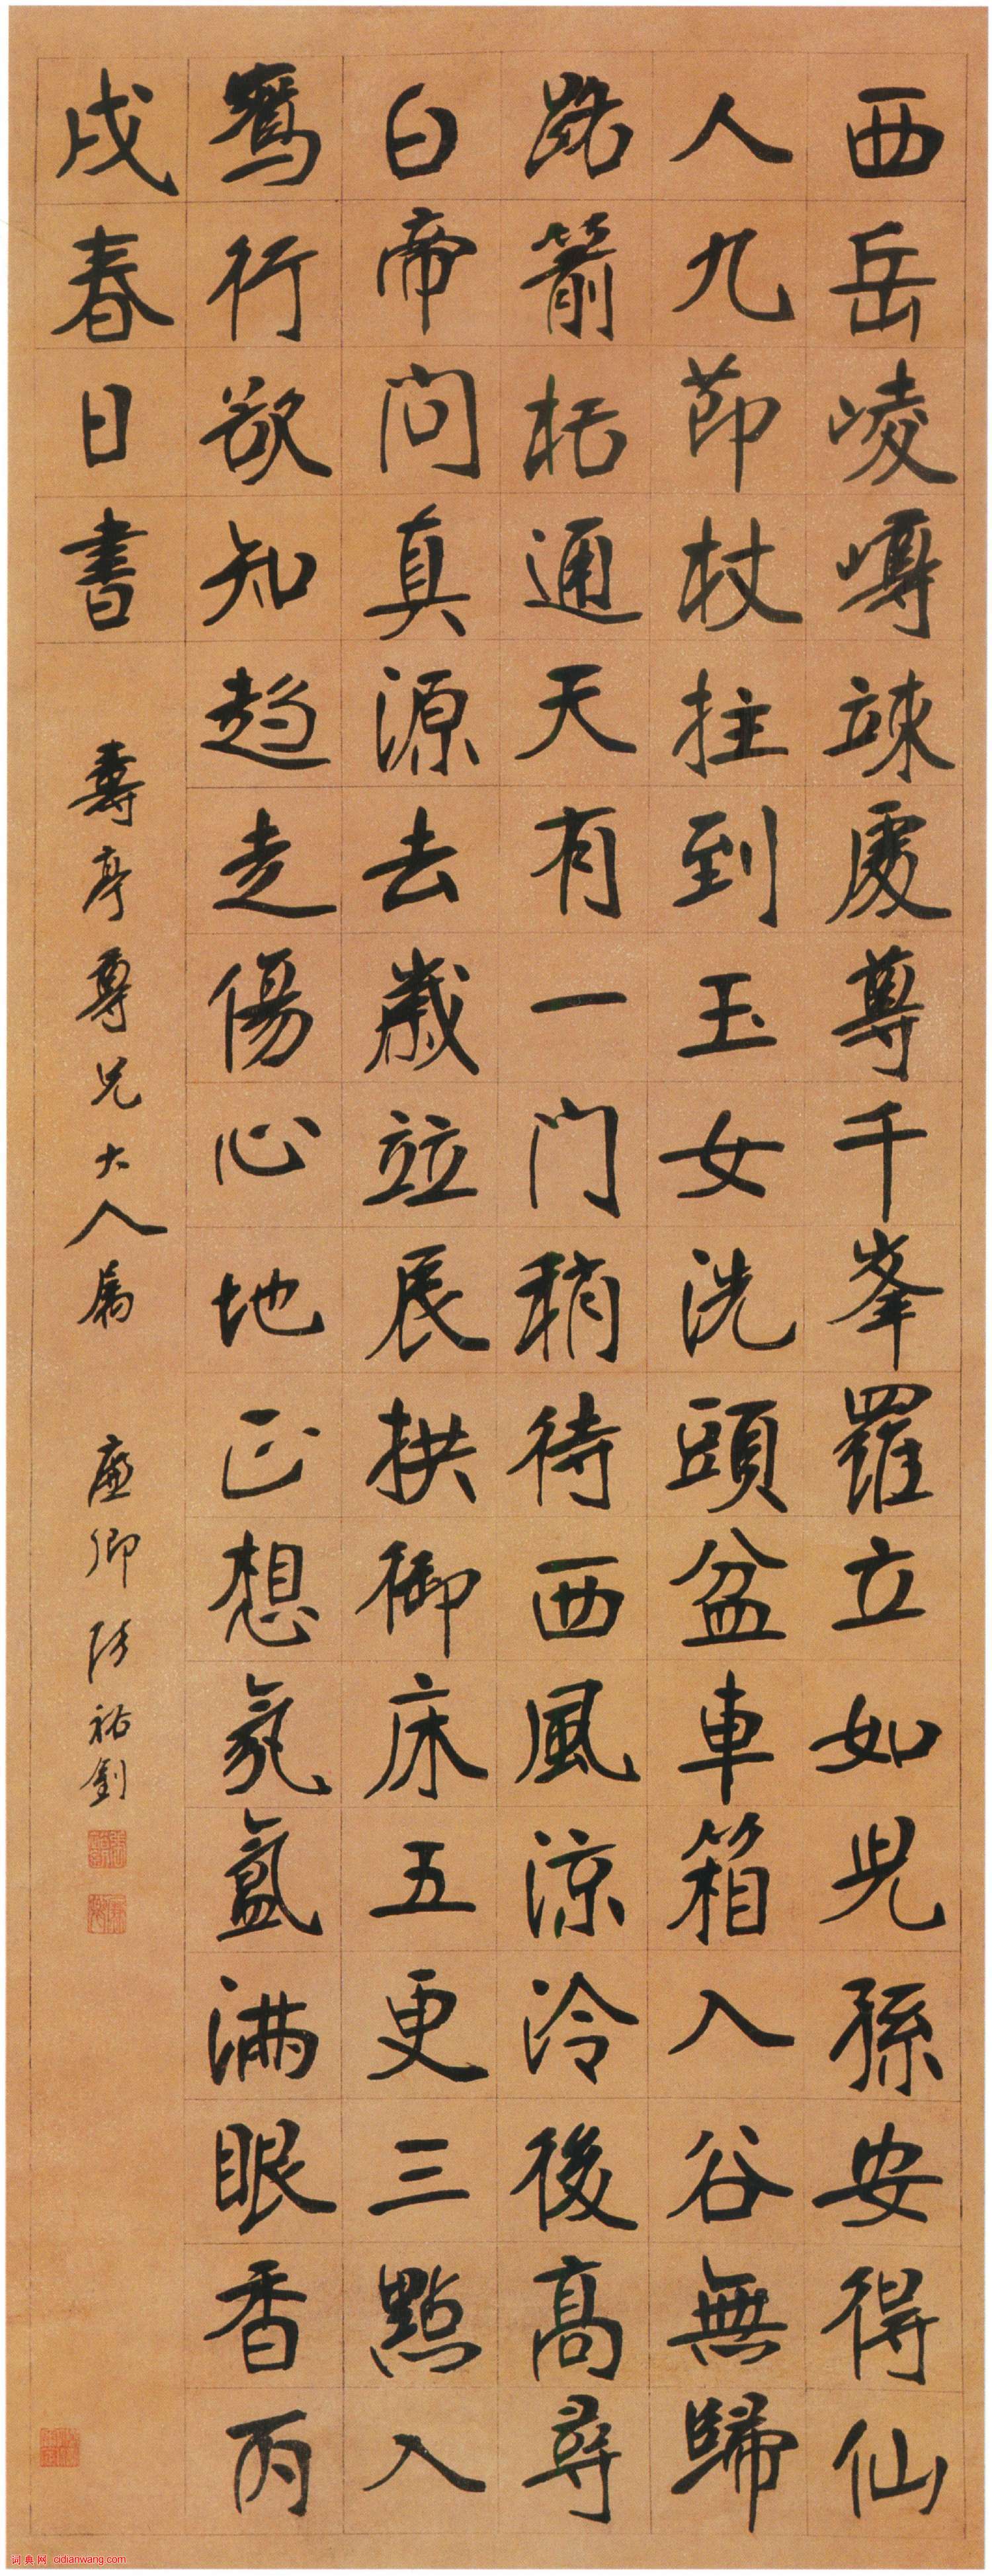 西岳崚嶒竦處尊千峯羅立如兒孫安得仙
人九莭杖拄到玉女洗頭盆車箱入谷無歸
路箭栝通天有一門稍待西風涼冷後高尋
白帝問真源去歲竝辰拱御床五更三點入
鴛行欲知趍走傷心地正想氤氳滿眼香丙
戌春日書
壽亭尊兄大人屬
廉卿張裕釗
词典网 cidianwang.com